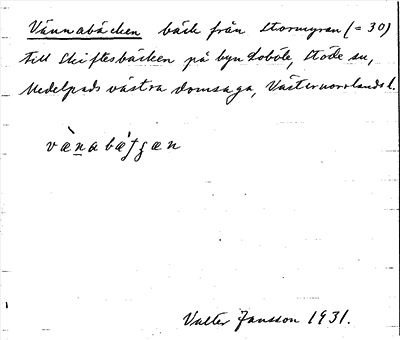 Vännabäcken bäck från Stormyran (= 30)
till Skiftesbäcken på byn Loböle, Stöde sn,
Medelpads västra domsaga, Västernorrlands l.
væ̀nabæʹfgæn
Valter Jansson 1931.